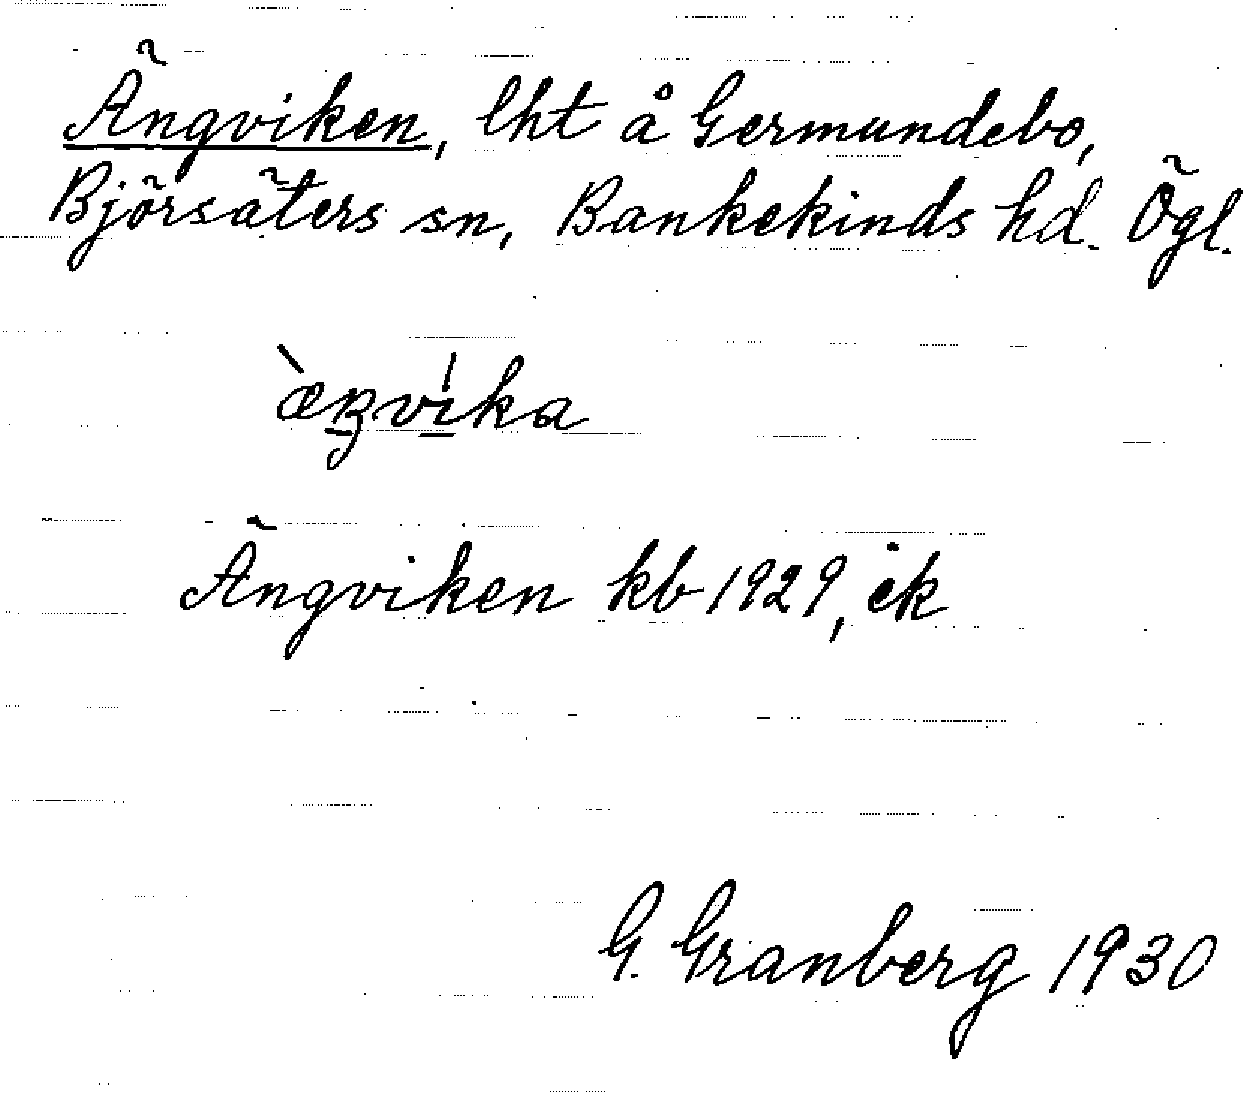 Ängviken, lht å Germundebo,
Björsäters sn, Bankekinds hd. Ögl.
æ̀ŋvíka
Ängviken kb 1929, ek
G. Granberg 1930